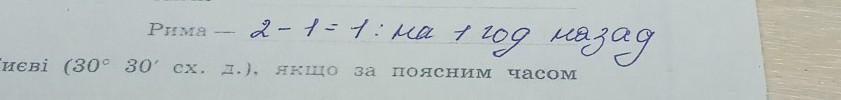 Рима — 2 - 1 = 1 : на 1 год назад
иєві (30° 30′ сх. д.), якщо за поясним часом